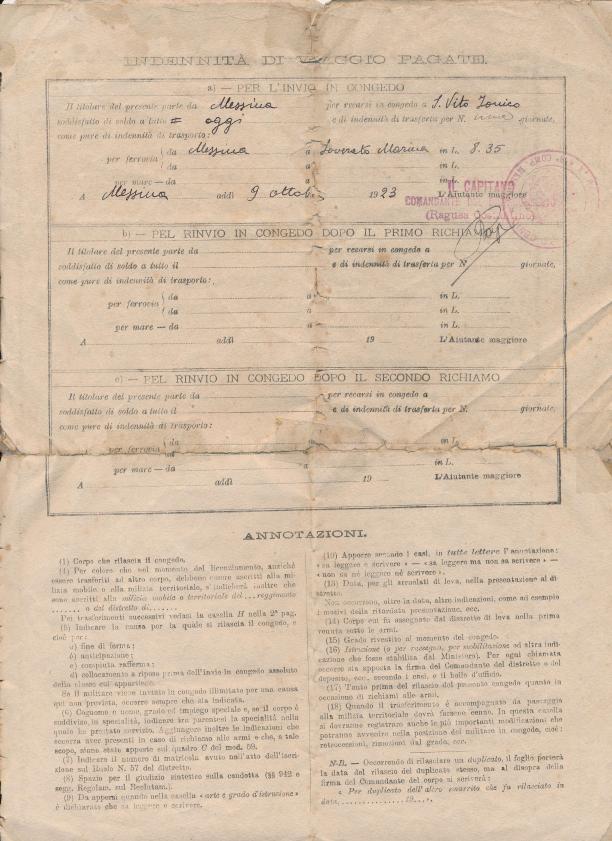 INDENNITÀ DI VIAGGIO PAGATE.
a) — PER L'INVIO IN CONGEDO
Il titolare del presente parte da Messina per recarsi in congedo a S. Vito Jonico
soddisfatto di soldo a tutto oggi e di indennità di trasferta per N. una giornate,
come pure di indennità di trasporto:
per ferrovia { da Messina a Soverato Marina in L. 8.35
da a in L.
per mare — da a in L.
A Messina addì 9 ottob. 1923 L'Aiutante maggiore
IL CAPITANO
COMANDANTE
(Ragusa
b) — PEL RINVIO IN CONGEDO DOPO IL PRIMO RICHIAMO
Il titolare del presente parte da per recarsi in congedo a
soddisfatto di soldo a tutto il e di indennità di trasferta per N. giornate,
come pure di indennità di trasporto:
per ferrovia { da a in L.
da a in L.
per mare — da a in L.
A addì 19 L'Aiutante maggiore
c) — PEL RINVIO IN CONGEDO DOPO IL SECONDO RICHIAMO
Il titolare del presente parte da per recarsi in congedo a
soddisfatto di soldo a tutto il e di indennità di trasferta per N. giornate,
come pure di indennità di trasporto:
per ferrovia { da a
da a in L.
per mare — da a in L.
A addì 19 L'Aiutante maggiore
ANNOTAZIONI.
(1) Corpo che rilascia il congedo.
(4) Per coloro che nel momento del licenziamento, anzichè
essere trasferiti ad altro corpo, debbono essere ascritti alla mi-
lizia mobile o alla milizia territoriale, s'indicherà inoltre che
sono ascritti alla milizia mobile o territoriale del ... reggimento
....... o del distretto di.......
Pei trasferimenti successivi vedasi la casella H nella 2ª pag.
(5) Indicare la causa per la quale si rilascia il congedo, e
cioè per:
a) fine di ferma;
b) anticipazione;
c) compiuta rafferma;
d) collocamento a riposo prima dell'invio in congedo assoluto
della classe cui appartiene.
Se il militare viene inviato in congedo illimitato per una causa
qui non prevista, occorre sempre che sia indicata.
(6) Cognome e nome, grado ed impiego speciale e, se il corpo è
suddiviso in specialità, indicare fra parentesi la specialità nella
quale ha prestato servizio. Aggiungere inoltre le indicazioni che
occorra aver presenti in caso di richiamo alle armi e che, a tale
scopo, siano state apposte sul quadro C del mod. 59.
(7) Indicare il numero di matricola avuto nell'atto dell'iscri-
zione sul Ruolo N. 57 del distretto.
(8) Spazio per il giudizio sintetico sulla condotta (§§ 942 e
segg. Regolam. sul Reclutam.).
(9) Da apporsi quando nella casella «arte e grado d'istruzione»
è dichiarato che sa leggere e scrivere.
(10) Apporre secondo i casi, in tutte lettere l'annotazione:
«sa leggere e scrivere» — «sa leggere ma non sa scrivere» —
«non sa nè leggere nè scrivere».
(13) Data, per gli arruolati di leva, della presentazione al di-
stretto.
Non occorrono, oltre la data, altre indicazioni, come ad esempio
i motivi della ritardata presentazione, ecc.
(14) Corpo cui fu assegnato dal distretto di leva nella prima
venuta sotto le armi.
(15) Grado rivestito al momento del congedo.
(16) Istruzione (o per rassegna, per mobilitazione od altra indi-
cazione che fosse stabilita dal Ministero). Per ogni chiamata
occorre sia apposta la firma del Comandante del distretto o del
deposito, ecc., secondo i casi, e il bollo d'ufficio.
(17) Tanto prima del rilascio del presente congedo quanto in
occasione di richiami alle armi.
(18) Quando il trasferimento è accompagnato da passaggio
alla milizia territoriale dovrà farsene cenno. In questa casella
si dovranno registrare anche le più importanti modificazioni che
potranno avvenire nella posizione del militare in congedo, cioè:
retrocessioni, rimozioni dal grado, ecc.
N-B. — Occorrendo di rilasciare un duplicato, il foglio porterà
la data del rilascio del duplicato stesso, ma al disopra della
firma del Comandante del corpo si scriverà:
« Per duplicato dell'altro smarrito che fu rilasciato in
data,................19....».